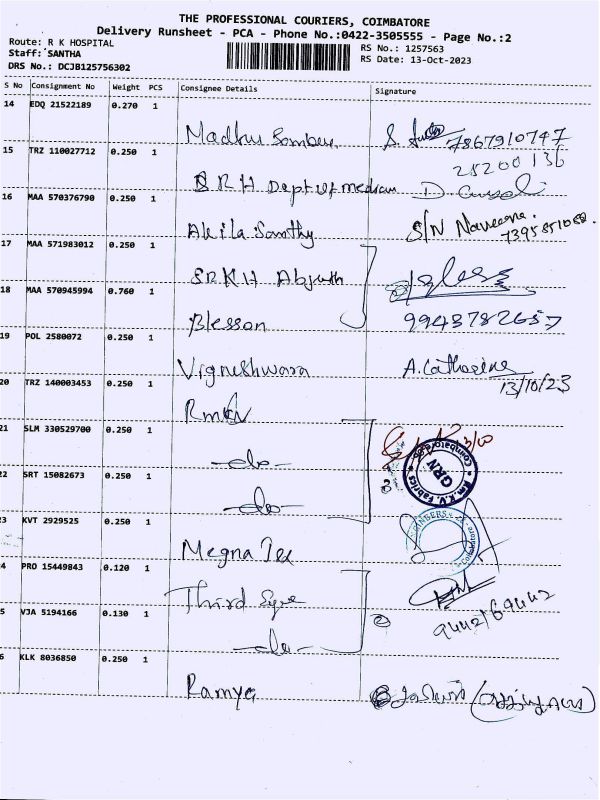 THE PROFESSIONAL COURIERS, COIMBATORE
Delivery Runsheet - PCA - Phone No.:0422-3505555 - Page No.:2
Route: R K HOSPITAL
RS No.: 1257563
Staff: SANTHA
RS Date: 13-Oct-2023
DRS No.: DCJB125756302
S No Consignment No Weight PCS Consignee Details Signature
14 EDQ 21522189 0.270 1
Madhu S. 7867910747
15 TRZ 110027712 0.250 1
25200136
SRH Dept of D.
16 MAA 570376790 0.250 1
Akila S/N Naveena.
7395851088
17 MAA 571983012 0.250 1
SRKH
18 MAA 570945994 0.760 1
Blesson 9943782657
19 POL 2580072 0.250 1
Vigneshwara A. Catherine
13/10/23
20 TRZ 140003453 0.250 1
RmKV
21 SLM 330529700 0.250 1
-do-
Rm.K.V. Fabrics
GRN
Coimbatore
22 SRT 15082673 0.250 1
-do-
3 KVT 2929525 0.250 1
Megna Tex
4 PRO 15449843 0.120 1
Third Eye
5 VJA 5194166 0.130 1
9442169442
-do-
6 KLK 8036850 0.250 1
Ramya